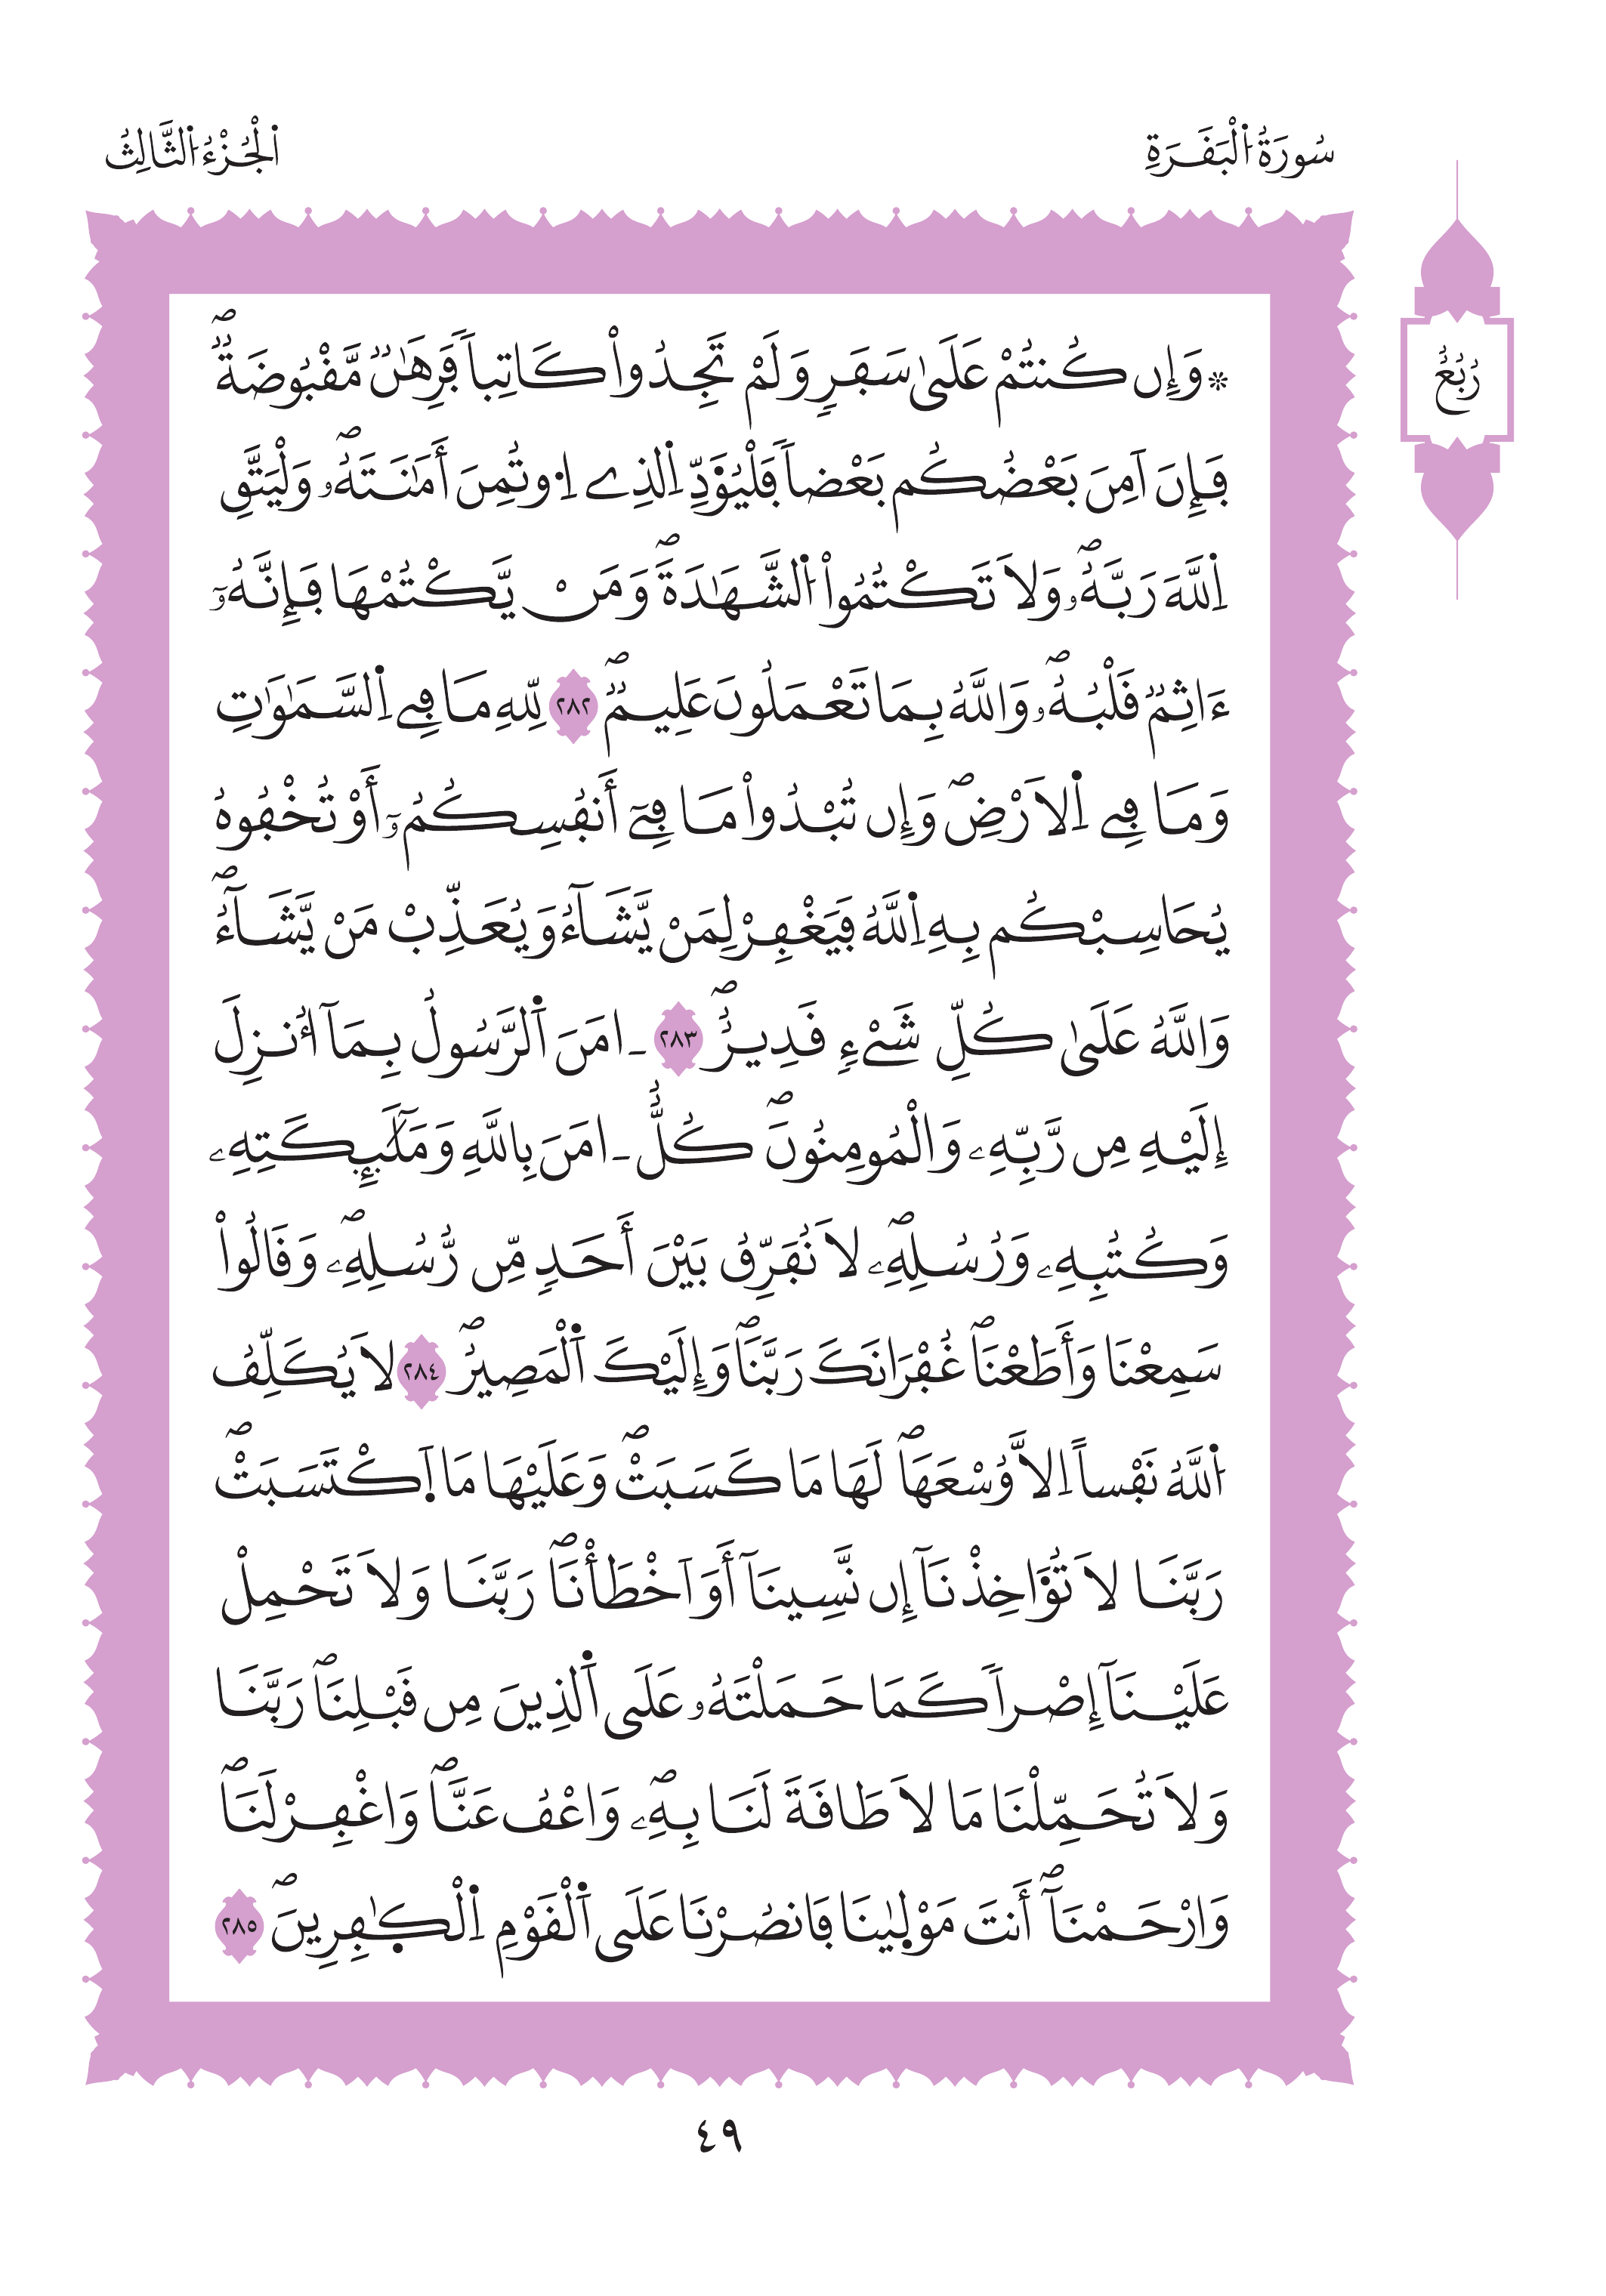 سُورَةُ اُ۬لْبَقَرَةِ
اَ۬لْجُزْءُ اُ۬لثَّالِثُ
رُبُعُ
۞وَإِن كُنتُمْ عَلَيٰ سَفَرٖ وَلَمْ تَجِدُواْ كَاتِباٗ فَرِهَٰنٞ مَّقْبُوضَةٞۖ
فَإِنَ اَمِنَ بَعْضُكُم بَعْضاٗ فَلْيُؤَدِّ اِ۬لذِے اِ۟وتُمِنَ أَمَٰنَتَهُۥۖ وَلْيَتَّقِ
اِ۬للَّهَ رَبَّهُۥۖ وَلَا تَكْتُمُواْ اُ۬لشَّهَٰدَةَۖ وَمَنْ يَّكْتُمْهَا فَإِنَّهُۥٓ
ءَاثِمٞ قَلْبُهُۥۖ وَاللَّهُ بِمَا تَعْمَلُونَ عَلِيمٞۖ ٢٨٢ لِّلهِ مَا فِے اِ۬لسَّمَٰوَٰتِ
وَمَا فِے اِ۬لَارْضِۖ وَإِن تُبْدُواْ مَا فِےٓ أَنفُسِكُمُۥٓ أَوْ تُخْفُوهُ
يُحَاسِبْكُم بِهِ اِ۬للَّهُ فَيَغْفِرْ لِمَنْ يَّشَآءُ وَيُعَذِّبْ مَنْ يَّشَآءُۖ
وَاللَّهُ عَلَيٰ كُلِّ شَےْءٖ قَدِيرٌۖ ٢٨٣ ـ امَنَ اَ۬لرَّسُولُ بِمَآ أُنزِلَ
إِلَيْهِ مِن رَّبِّهِۦ وَالْمُومِنُونَۖ كُلٌّ ـ امَنَ بِاللَّهِ وَمَلَٰٓئِكَتِهِۦ
وَكُتُبِهِۦ وَرُسُلِهِۦۖ لَا نُفَرِّقُ بَيْنَ أَحَدٖ مِّن رُّسُلِهِۦۖ وَقَالُواْ
سَمِعْنَا وَأَطَعْنَاۖ غُفْرَانَكَ رَبَّنَاۖ وَإِلَيْكَ اَ۬لْمَصِيرُۖ ٢٨٤ لَا يُكَلِّفُ
اُ۬للَّهُ نَفْساً اِلَّا وُسْعَهَاۖ لَهَا مَا كَسَبَتْۖ وَعَلَيْهَا مَا اَ۪كْتَسَبَتْۖ
رَبَّنَا لَا تُؤَاخِذْنَآ إِن نَّسِينَآ أَوَ اَخْطَأْنَاۖ رَبَّنَا وَلَا تَحْمِلْ
عَلَيْنَآ إِصْراٗ كَمَا حَمَلْتَهُۥ عَلَي اَ۬لذِينَ مِن قَبْلِنَاۖ رَبَّنَا
وَلَا تُحَمِّلْنَا مَا لَا طَاقَةَ لَنَا بِهِۦۖ وَاعْفُ عَنَّاۖ وَاغْفِرْ لَنَاۖ
وَارْحَمْنَآۖ أَنتَ مَوْل۪يٰنَا فَانصُرْنَا عَلَي اَ۬لْقَوْمِ اِ۬لْكٰ۪فِرِينَۖ ٢٨٥
٤٩